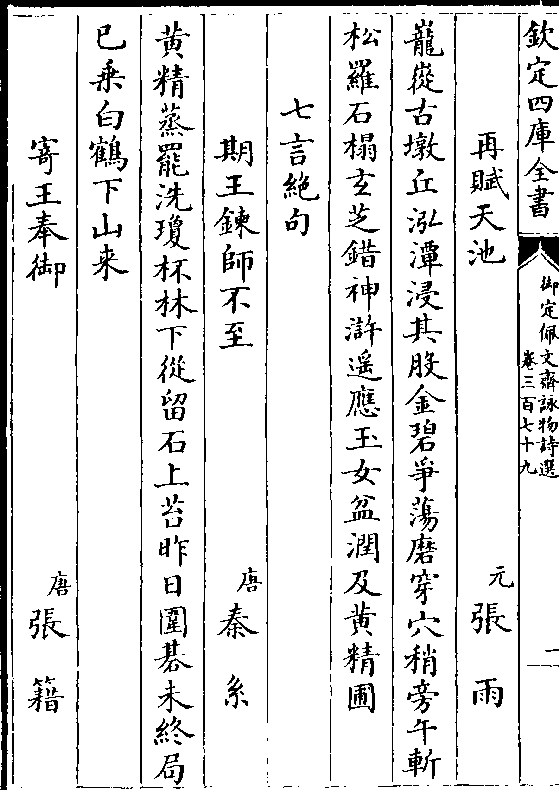 欽定四庫全書
御定佩文齋詠物詩選
卷三百七十九
一
再賦天池
元張雨
巃嵸古墩丘泓潭浸其股金碧爭蕩磨穿穴稍旁午斬
松羅石榻玄芝錯神滸遥應玉女盆潤及黄精圃
七言絶句
期王鍊師不至
唐秦系
黄精蒸罷洗瓊杯林下從留石上苔昨日圍碁未終局
已乗白鶴下山来
寄王奉御
唐張籍